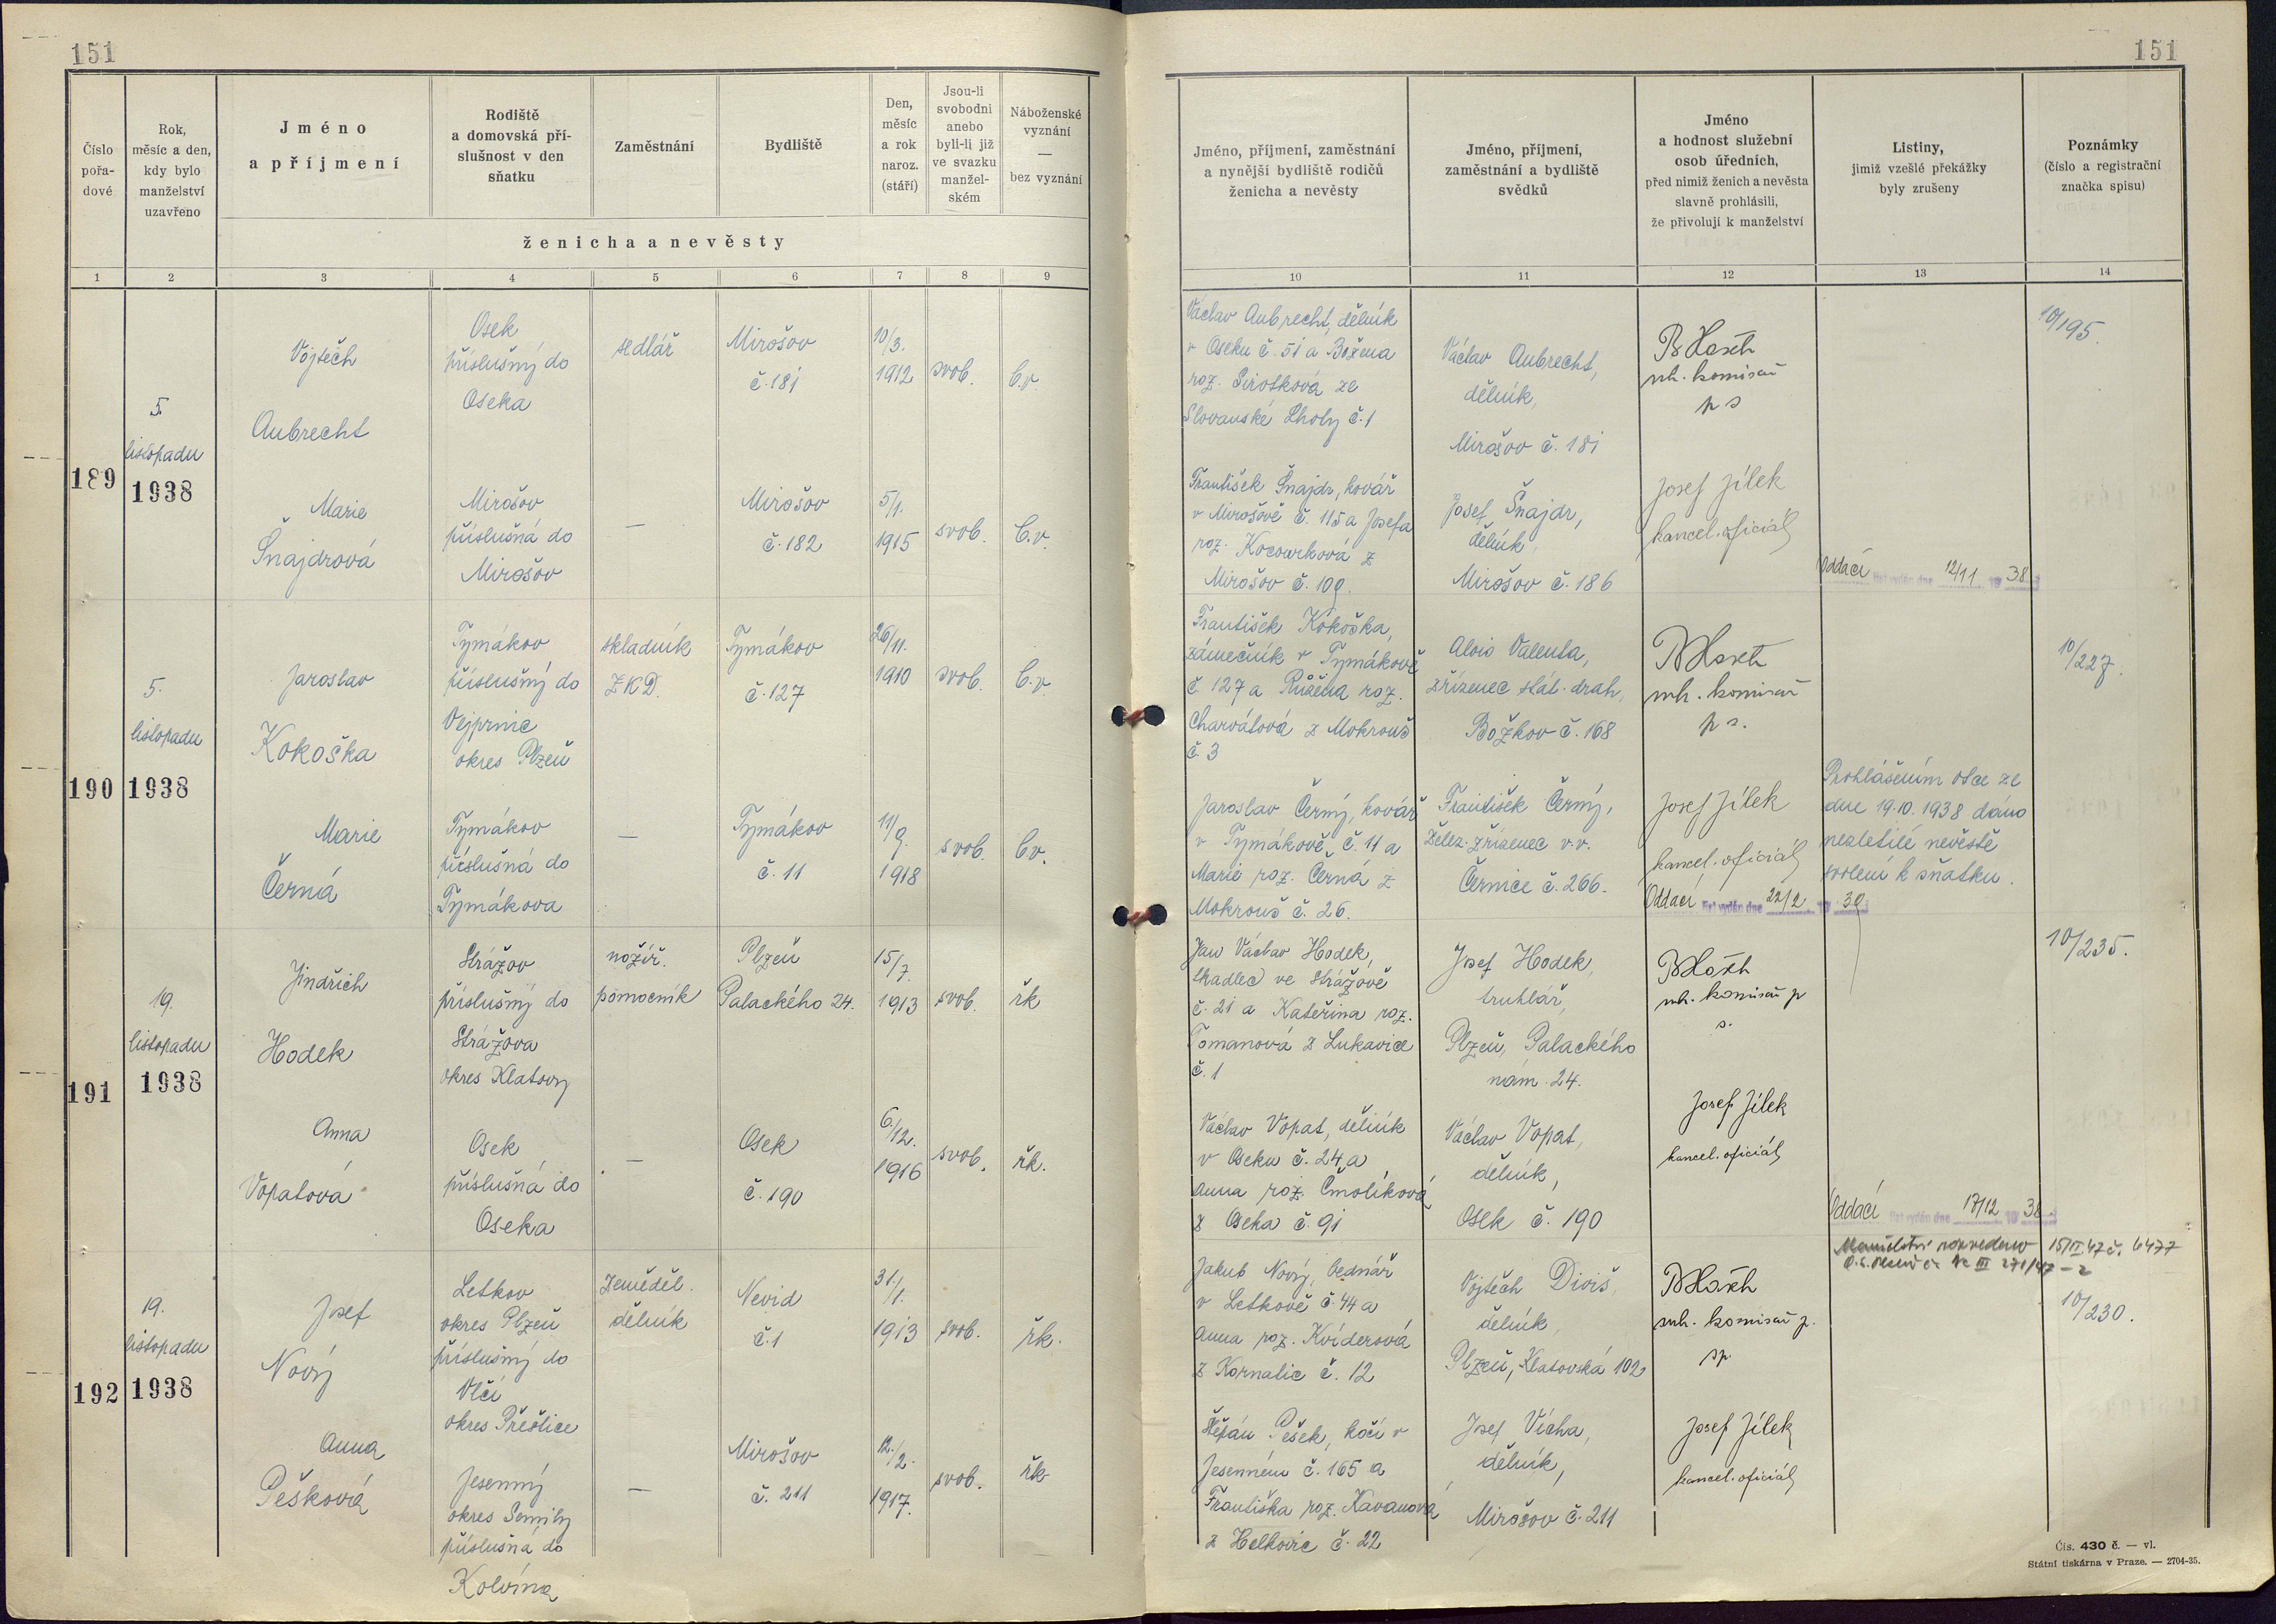 151
Číslo
pořa-
dové
Rok,
měsíc a den,
kdy bylo
manželství
uzavřeno
Jméno
a příjmení
Rodiště
a domovská pří-
slušnost v den
sňatku
Zaměstnání
Bydliště
Den,
měsíc
a rok
naroz.
(stáří)
Jsou-li
svobodni
anebo
byli-li již
ve svazku
manžel-
ském
Náboženské
vyznání
—
bez vyznání
ženicha a nevěsty
1 2 3 4 5 6 7 8 9
189
5.
listopadu
1938
Vojtěch
Aubrecht
Osek
příslušný do
Oseka
sedlář
Mirošov
č. 181
10/3.
1912
svob.
b.v.
Marie
Šnajdrová
Mirošov
příslušná do
Mirošov
—
Mirošov
č. 182
5/1.
1915
svob.
b.v.
190
5.
listopadu
1938
Jaroslav
Kokoška
Tymákov
příslušný do
Vejprnic
okres Plzeň
skladník
ZKD.
Tymákov
č. 127
26/11.
1910
svob.
b.v.
Marie
Černá
Tymákov
příslušná do
Tymákova
—
Tymákov
č. 11
11/9.
1918
svob.
b.v.
191
19.
listopadu
1938
Jindřich
Hodek
Strážov
příslušný do
Strážova
okres Klatovy
nožíř.
pomocník
Plzeň
Palackého 24.
15/7.
1913
svob.
řk
Anna
Vopatová
Osek
příslušná do
Oseka
—
Osek
č. 190
6./12.
1916
svob.
řk.
192
19.
listopadu
1938
Josef
Nový
Letkov
okres Plzeň
příslušný do
Vlčí
okres Přeštice
Zeměděl.
dělník
Nevid
č. 1
31/1.
1913
svob.
řk.
Anna
Pešková
Jesenný
okres Semily
příslušná do
Kolvína
—
Mirošov
č. 211
12./2.
1917.
svob.
řk
151
Jméno, příjmení, zaměstnání
a nynější bydliště rodičů
ženicha a nevěsty
Jméno, příjmení,
zaměstnání a bydliště
svědků
Jméno
a hodnost služební
osob úředních,
před nimiž ženich a nevěsta
slavně prohlásili,
že přivolují k manželství
Listiny,
jimiž vzešlé překážky
byly zrušeny
Poznámky
(číslo a registrační
značka spisu)
10 11 12 13 14
Václav Aubrecht, dělník
v Oseku č. 51 a Božena
roz. Sirotková ze
Slovanské Lhoty č. 1
Václav Aubrecht,
dělník,
Mirošov č. 181
vrh. komisař
p s
10/195.
František Šnajdr, kovář
v Mirošově č. 115 a Josefa
roz. Kocourková z
Mirošov č. 109.
Josef Šnajdr,
dělník,
Mirošov č. 186
Josef Jílek
kancel. oficiál
Oddací list vydán dne 12/11 19 38
František Kokoška,
zámečník v Tymákově
č. 127 a Růžena roz.
Charvátová z Mokrouš
č. 3
Alois Valenta,
zřízenec stát. drah,
Božkov č. 168
vrh. komisař
p s.
10/227.
Jaroslav Černý, kovář
v Tymákově č. 11 a
Marie roz. Černá z
Mokrouš č. 26.
František Černý,
želez. zřízenec v.v.
Černice č. 266.
Josef Jílek
kancel. oficiál
Prohlášením otce ze
dne 19.10.1938 dáno
nezletilé nevěstě
svolení k sňatku.
Oddací list vydán dne 22/2 19 39
Jan Václav Hodek,
tkadlec ve Strážově
č. 21 a Kateřina roz.
Tomanová z Lukavice
č. 1
Josef Hodek,
truhlář,
Plzeň, Palackého
nám. 24.
vrh. komisař p
s.
10/235.
Václav Vopat, dělník
v Oseku č. 24 a
Anna roz. Čmolíková
z Oseka č. 91
Václav Vopat,
dělník,
Osek č. 190
Josef Jílek
kancel. oficiál
Oddací list vydán dne 17/12 19 38
Manželství rozvedeno 15/II 47 č. 6477
Jakub Nový, bednář
v Letkově č. 44 a
Anna roz. Kviderová
z Kornatic č. 12
Vojtěch Diviš,
dělník,
Plzeň, Klatovská 102
vrh. komisař p.
sp.
10/230.
Štěpán Pešek, kočí v
Jesenném č. 165 a
Františka roz. Kavanová
z Helkovic č. 22
Josef Vícha,
dělník,
Mirošov č. 211
Josef Jílek
kancel. oficiál
Čís. 430 č. — vl.
Státní tiskárna v Praze. — 2704-35.